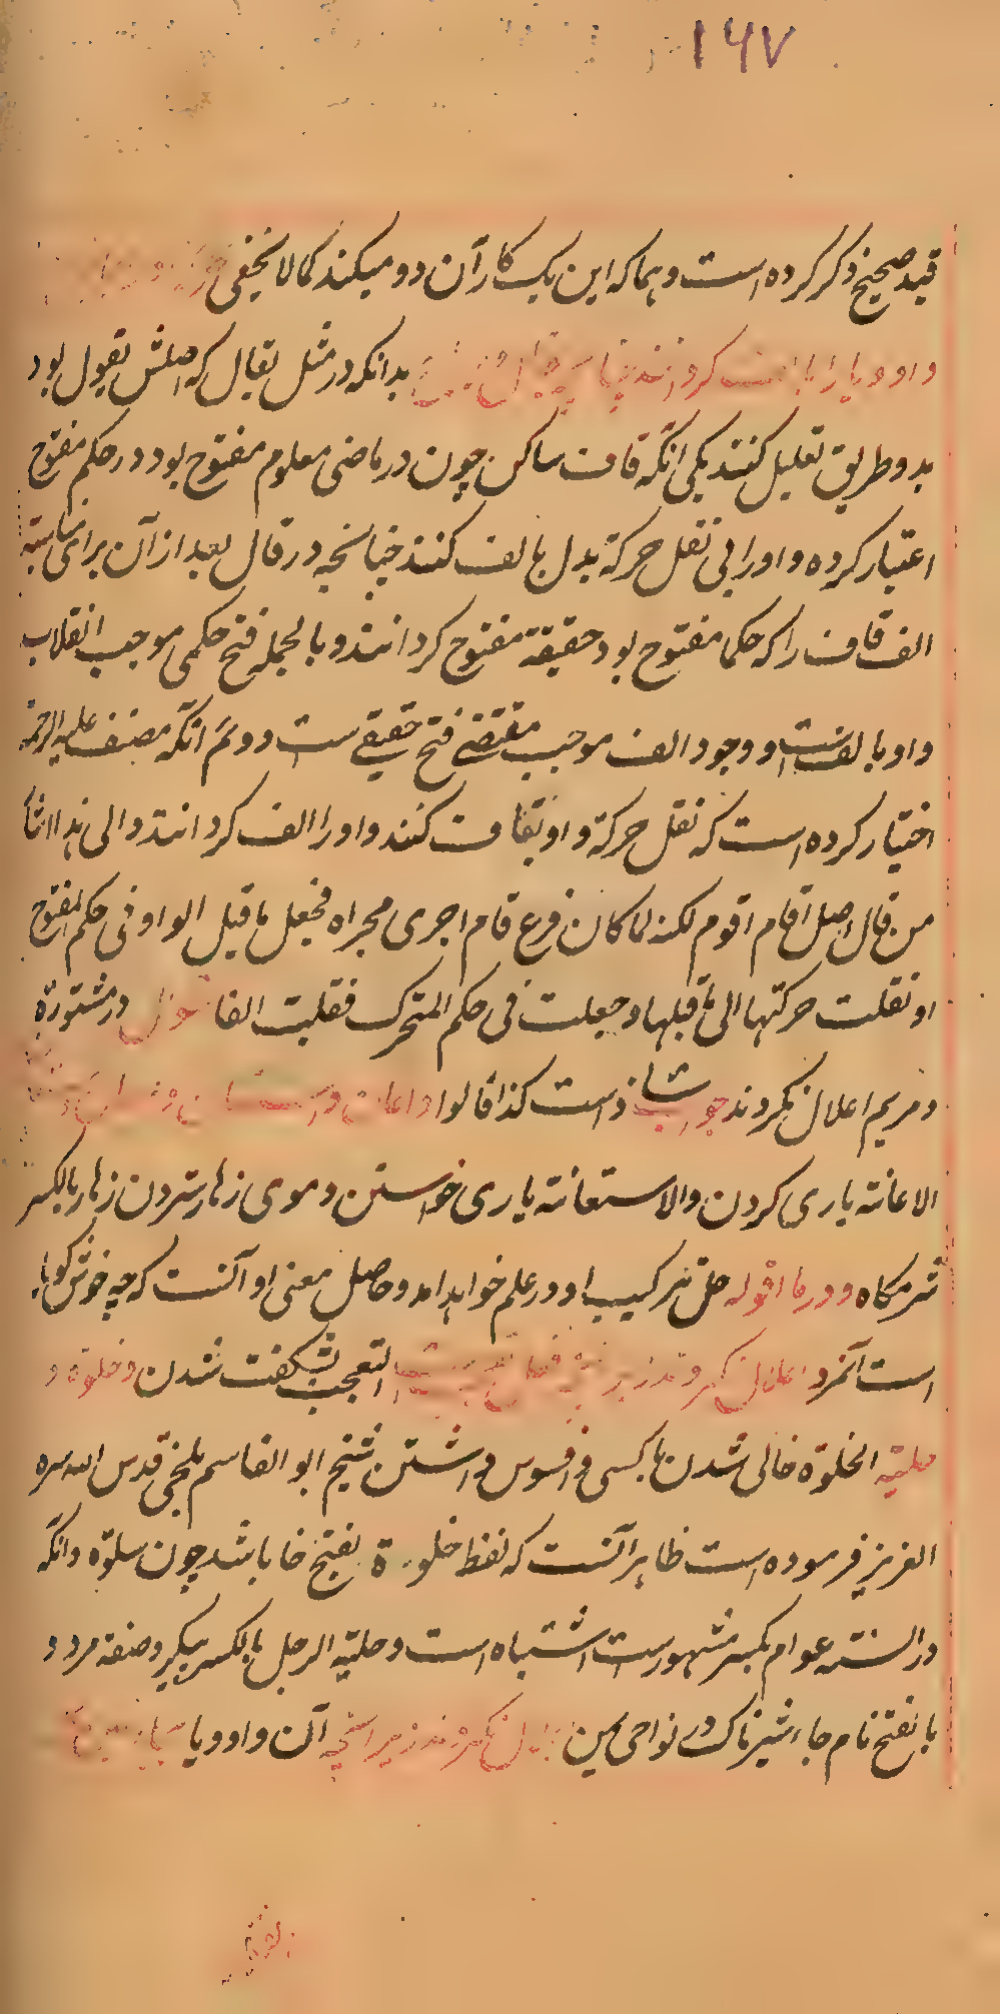 ۱۶۷
قید صحیح ذکر کرده است و هما که این یک کار آن دو میکند کما لا یخفی
واو و یا را بدانکه در مثل یقال که اصلش یقول بود
بدو طریق تعلیل کنند یکی انکه قاف ساکن چون در ماضی معلوم مفتوح بود در حکم مفتوح
اعتبار کرده واو را بی نقل حرکة بدل بالف کنند چنانچه در قال بعد از آن برای مناسبة
الف قاف را که حکما مفتوح بود حقیقة مفتوح کردانند و بالجمله فتح حکمی موجب انقلاب
واو بالف است و وجود الف موجب مقتضی فتح حقیقی ست دوم انکه مصنف علیه الرحمة
اختیار کرده است که نقل حرکة واو بقاف کنند واو را الف کردانند والی هذا اشار
من قال اصل اقام اقوم لکنه لما کان فرع قام اجری مجراه فجعل ما قبل الواو فی حکم المفتوح
او نقلت حرکتها الی ما قبلها و جعلت فی حکم المتحرک فقلبت الفا سؤال در مشورة
و مریم اعلال نکردند جواب شاذ است کذا قالوا و اعانت
الاعانة یاری کردن والاستعانة یاری خواستن و موی زهار ستردن زهار بالکسر
شرمکاه و در ما اقوله حق ترکیب او در علم خواهد امد و حاصل معنی او آنست که چه خوش کویا
است آنمرد اعلال نکردند زیرا التعجب بشکفت شدن و خلوة و
حلیة الخلوة خالی شدن با کسی و افسوس داشتن شیخ ابو القاسم بلخی قدس الله سره
العزیز فرموده است ظاهر آنست که لفظ خلوة بفتح خا باشد چون سلوة وانکه
در السنه عوام بکسر مشهور است اشتباه است و حلیة الرجل بالکسر پیکر و صفة مرد و
بالفتح نام جاء شیرناک در نواحی یمن اعلال نکردند زیرا آنچه آن واو و یا